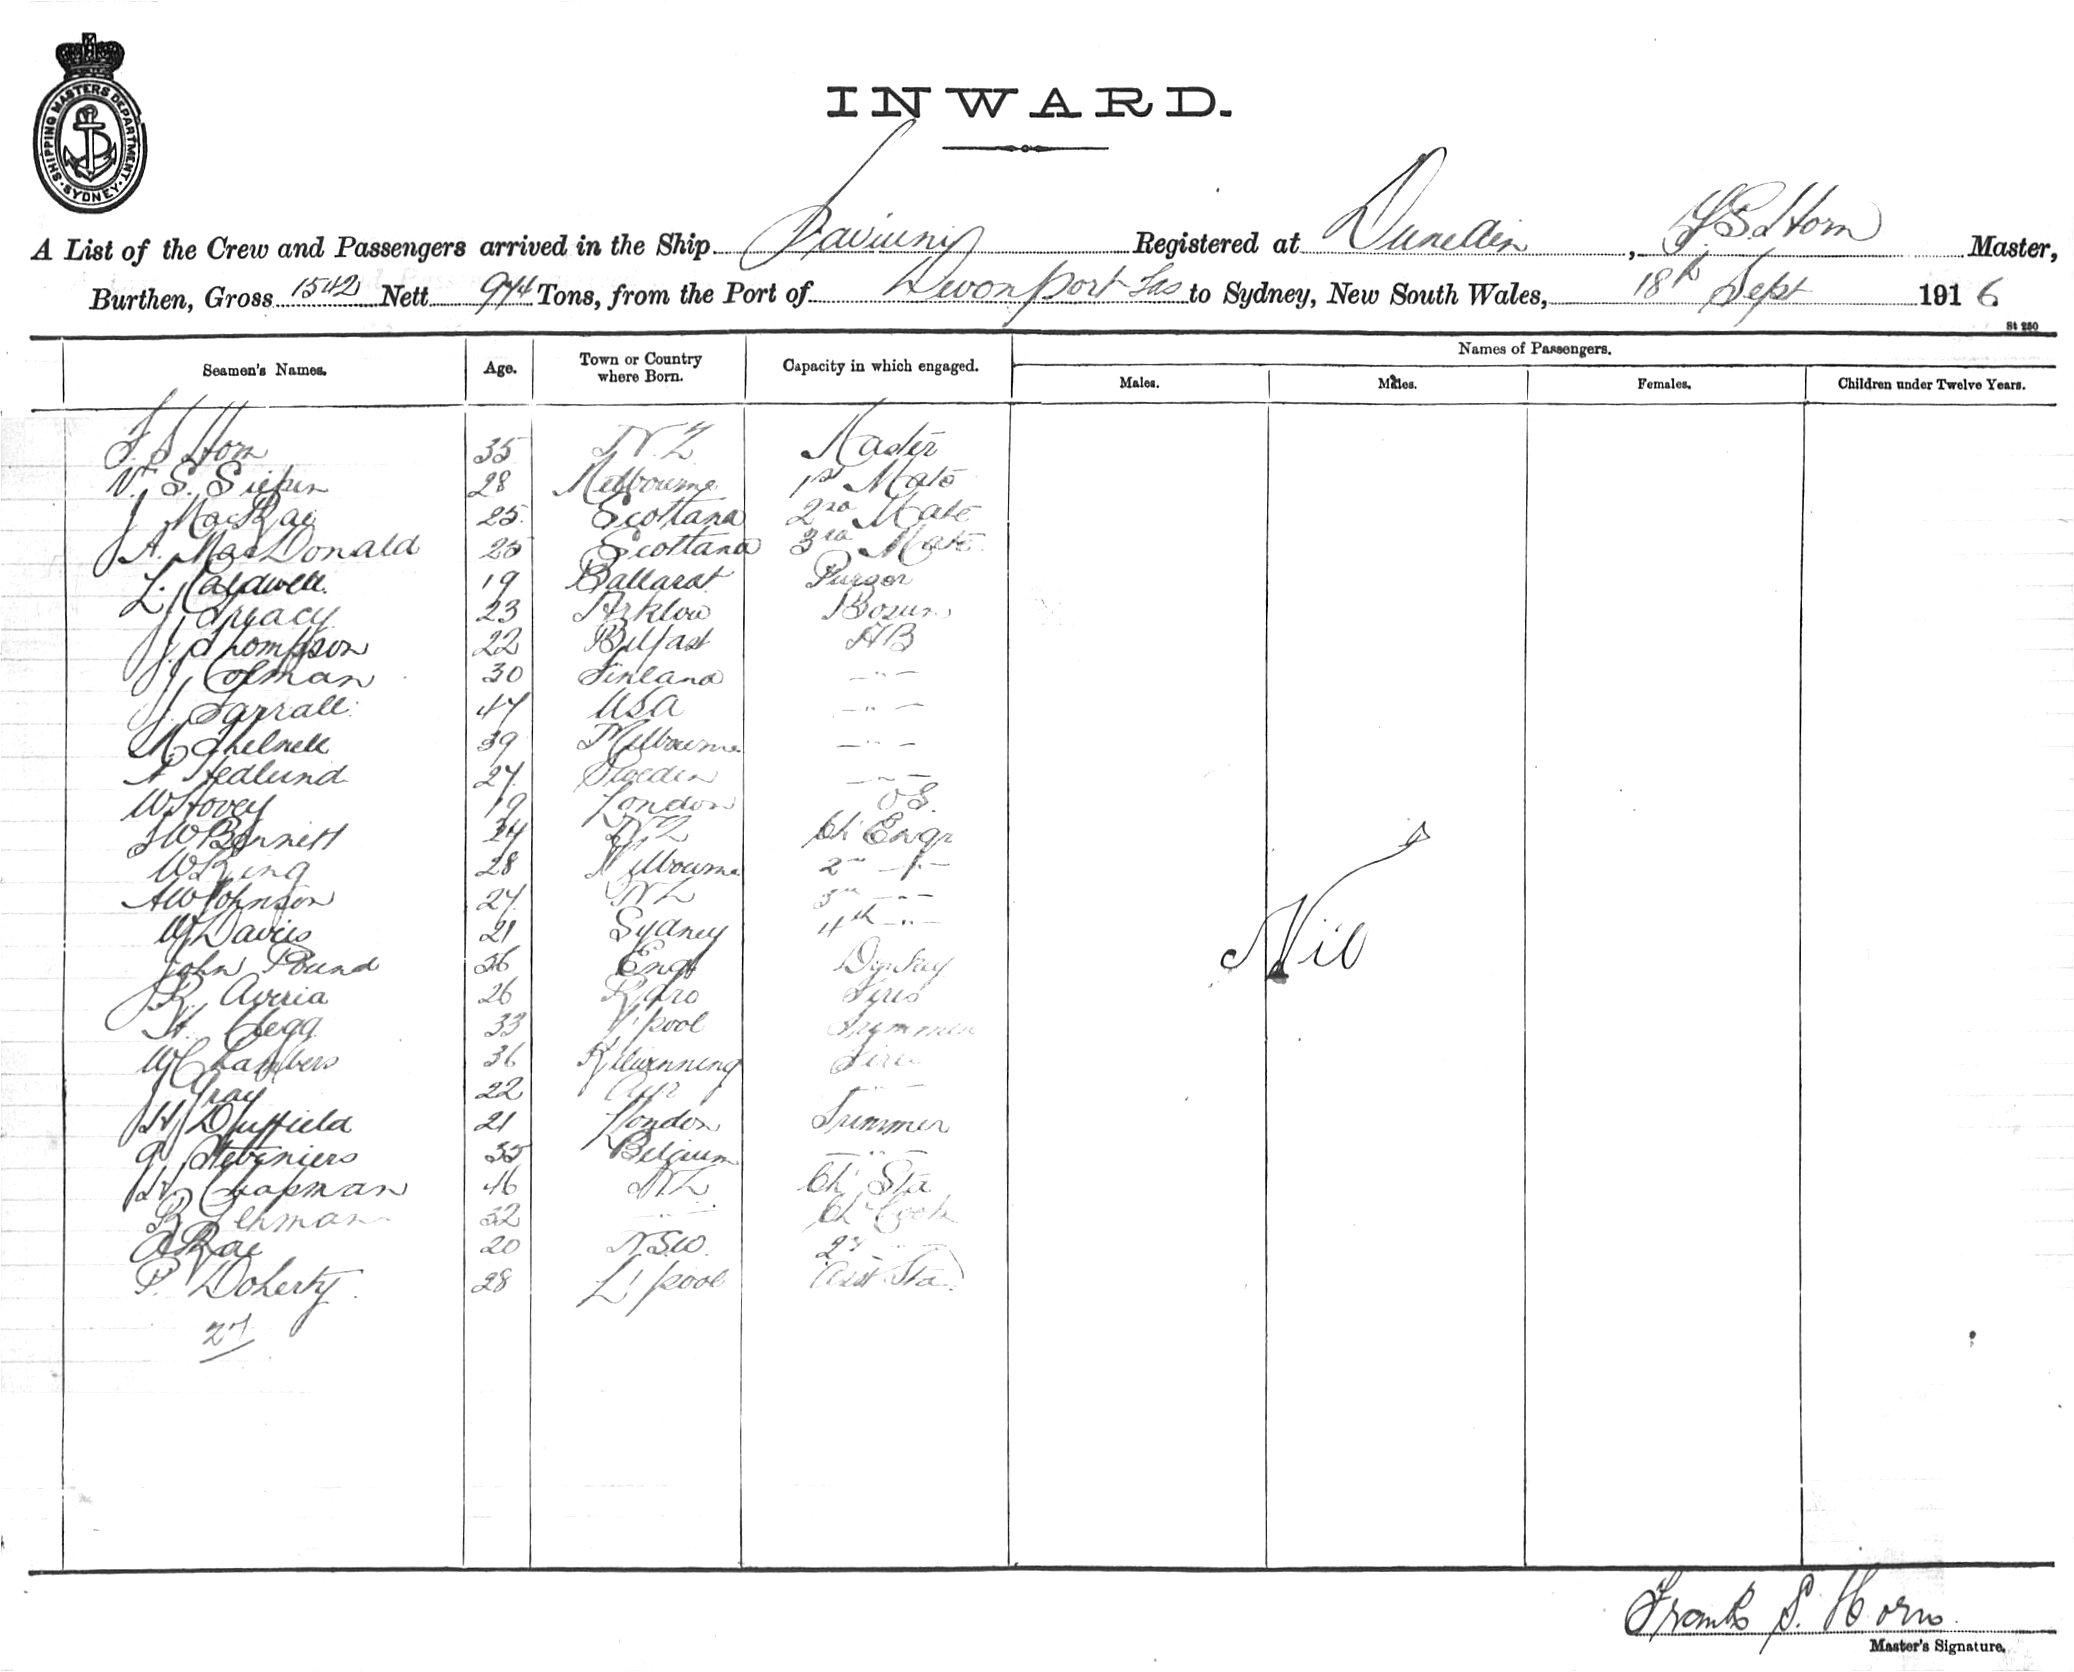 SHIPPING MASTERS DEPARTMENT. SYDNEY.
INWARD.
A List of the Crew and Passengers arrived in the Ship Registered at Dunedin, F. S. Horn Master,
Burthen, Gross 1542 Nett 944 Tons, from the Port of Devonport Tas to Sydney, New South Wales, 18th Sept 1916
St 250
Seamen's Names. Age. Town or Country where Born. Capacity in which engaged. Names of Passengers.
Males. Males. Females. Children under Twelve Years.
F. S Horn 35 N.Z Master
S. 28 Melbourne 1st Mate
J MacRae 25 Scotland 2nd Mate
A. MacDonald 25 Scotland 3rd Mate
L. Caldwell 19 Ballarat Purser
J Treacy 23 Arklow Bosun
J. Thompson 22 Belfast AB
J Colman 30 Finland - " -
J. Farrall 47 USA - " -
39 Melbourne - " -
A Hedlund 27 Sweden - " -
W Hovey 19 London OS.
J W Bennett 34 N.Z Ch Engr
W King 28 Melbourne 2nd - " -
A W Johnson 27 NZ 3rd - " -
W Davies 21 Sydney 4th - " -
John Pound 36 Eng Donkey
R. Averia 26 Raro Fire
H. Clegg 33 L'pool Trimmer
W Chambers 36 Kilwinning Fire
J Gray 22 Ayr - " -
H Duffield 21 London Trimmer
35 Belgium - " -
H Chapman 46 NZ Ch Std
R Lehman 32 - " - Ch Cook
A Rae 20 NSW. 2nd - " -
P. Doherty 28 L'pool Asst Std
27
Nil
Frank S. Horn
Master's Signature.